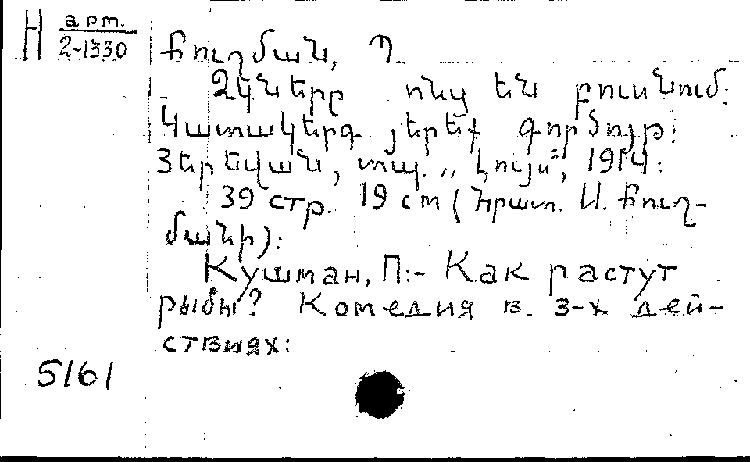 Н арт.
2-1330
Քուշման, Պ
Ձկները ոնց են բուսնում:
Կատակերգ յերեք գործող:
Յերեվան, տպ. „Լույս", 1914:
39 стр. 19 cm (Հրատ. Ս. Քուշ-
մանի):
Кушман, П:- Как растут
рыбы? Комедия в. 3-х дей-
ствиях:
5161